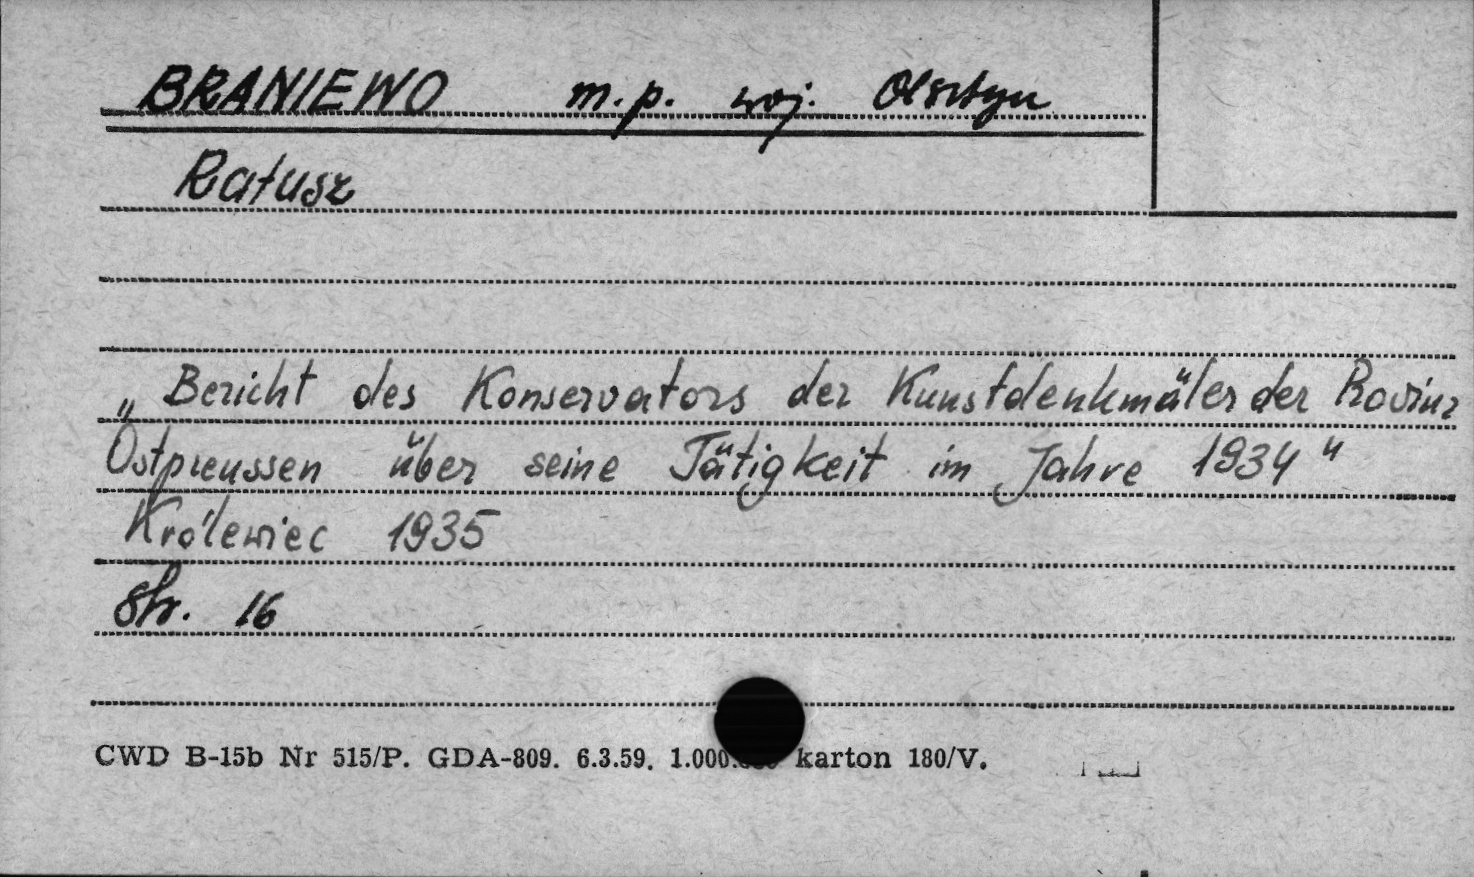 BRANIEWO m.p. woj. Olsztyn
Ratusz
„Bericht des Konservators der Kunstdenkmäler der Provinz
Ostpreussen über seine Tätigkeit im Jahre 1934"
Królewiec 1935
Str. 16
CWD B-15b Nr 515/P. GDA-809. 6.3.59. 1.000. karton 180/V.